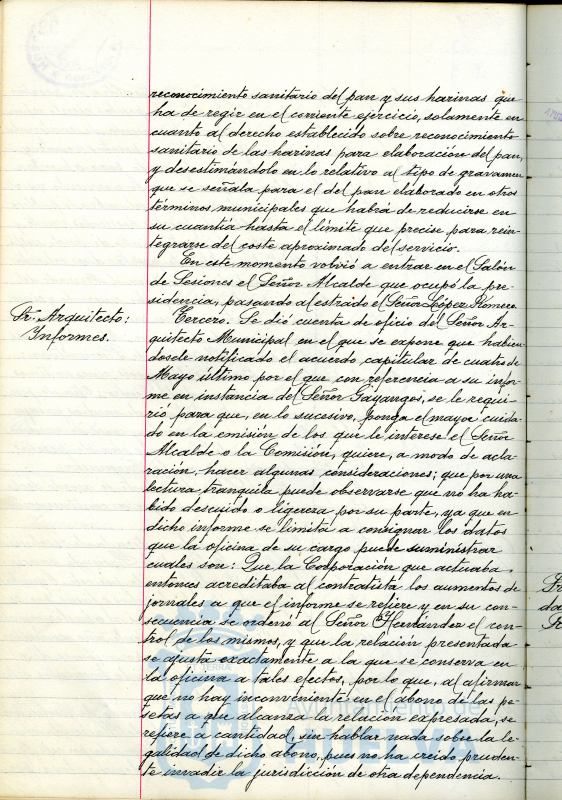 reconocimiento sanitario del pan y sus harinas que
ha de regir en el corriente ejercicio, solamente en
cuanto al derecho establecido sobre reconocimiento
sanitario de las harinas para elaboración del pan,
y desestimándolo en lo relativo al tipo de gravamen
que se señala para el del pan elaborado en otros
términos municipales que habrá de reducirse en
su cuantía hasta el límite que precise para rein-
tegrarse del coste aproximado del servicio.
En este momento volvió a entrar en el Salón
de Sesiones el Señor Alcalde que ocupó la pre-
sidencia, pasando al estrado el Señor López Romero
Sr. Arquitecto:
Informes.
Tercero. Se dió cuenta de oficio del Señor Ar-
quitecto Municipal en el que se expone que habien-
dosele notificado el acuerdo capitular de cuatro de
Mayo último por el que con referencia a su infor-
me en instancia del Señor Gayangos, se le requi-
rió para que, en lo sucesivo, ponga el mayor cuida-
do en la emisión de los que le interese el Señor
Alcalde o la Comisión, quiere, a modo de acla-
ración, hacer algunas consideraciones; que por una
lectura tranquila puede observarse que no ha ha-
bido descuido o ligereza por su parte, ya que en
dicho informe se limita a consignar los datos
que la oficina de su cargo puede suministrar
cuales son: Que la Corporación que actuaba
entonces acreditaba al contratista los aumentos de
jornales a que el informe se refiere y en su con-
secuencia se ordenó al Señor Hernández el con-
trol de los mismos, y que la relación presentada
se ajusta exactamente a la que se conserva en
la oficina a tales efectos, por lo que, al afirmar
que no hay inconveniente en el abono de las pe-
setas a que alcanza la relación expresada, se
refiere a cantidad, sin hablar nada sobre la le-
galidad de dicho abono, pues no ha creido pruden-
te invadir la jurisdicción de otra dependencia.
Ayuntamiento de
HUELVA